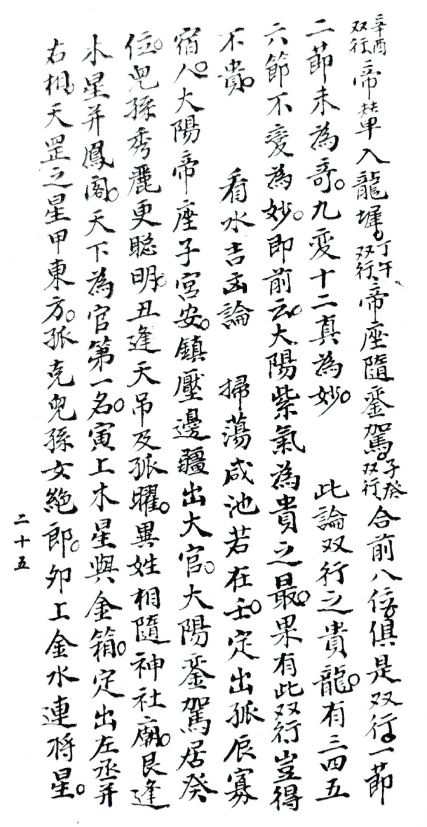 辛酉双行帝輦单入龍墀。丁午双行帝座隨鑾駕。子癸双行合前八位。俱是双行。一節
二節未為奇。九変十二真為妙。 此論双行之貴龍。有三四五
六節不変為妙。即前云。大陽紫氣為貴之最。果有此双行豈得
不貴。 看水吉凶論 掃蕩咸池若在壬。定出孤辰寡
宿人。大陽帝座子宮安。鎮壓邊疆出大官。大陽鑾駕居癸
位。兒孫秀麗更聰明。丑逢天吊及孤曜。異姓相隨神社廟。艮逢
水星并鳳閣。天下為官第一名。寅上木星與金箱。定出左丞并
右相。天罡之星甲東方。孤克兒孫女絕郎。卯工金水連將星。
二十五